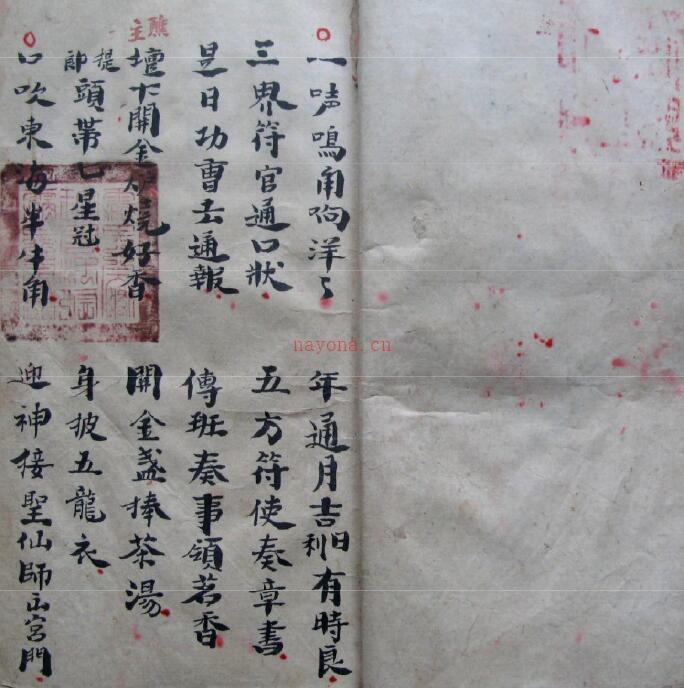 一声鳴角响洋〻 年通月吉日利有時良
三界符官通口狀 五方符使奏章書
是日功曹去通報 傳班奏事領茗香
醮主
壇下開金炉燒好香 開金盞捧茶湯
提郎頭帶七星冠 身披五龍衣
口吹東海犀牛角 迎神接聖仙師出宮門
nayona.cn